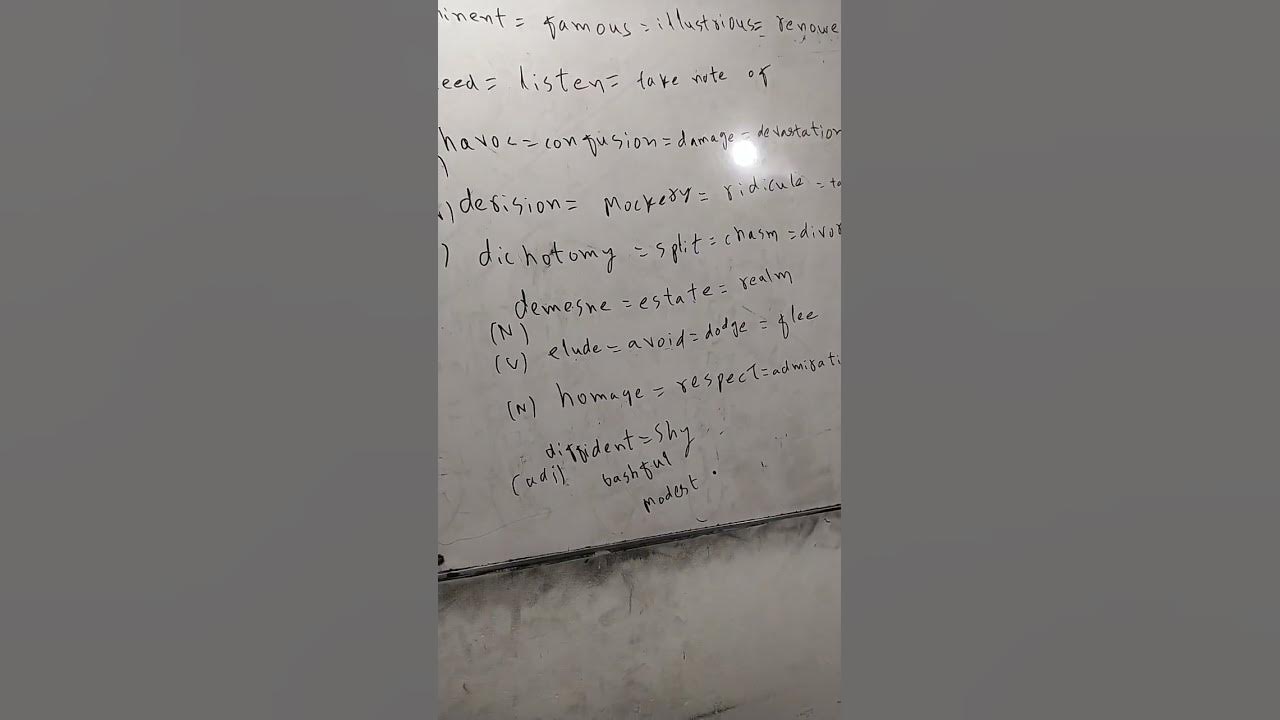 inent = famous = illustrious = renowe
eed = listen = take note of
havoc = confusion = damage = devastation
)
) derision = Mockery = ridicule = ta
) dichotomy = split = chasm = divor
demesne = estate = realm
(N)
(V) elude = avoid = dodge = flee
(N) homage = respect = admirati
diffident = Shy
(adj) bashful
modest